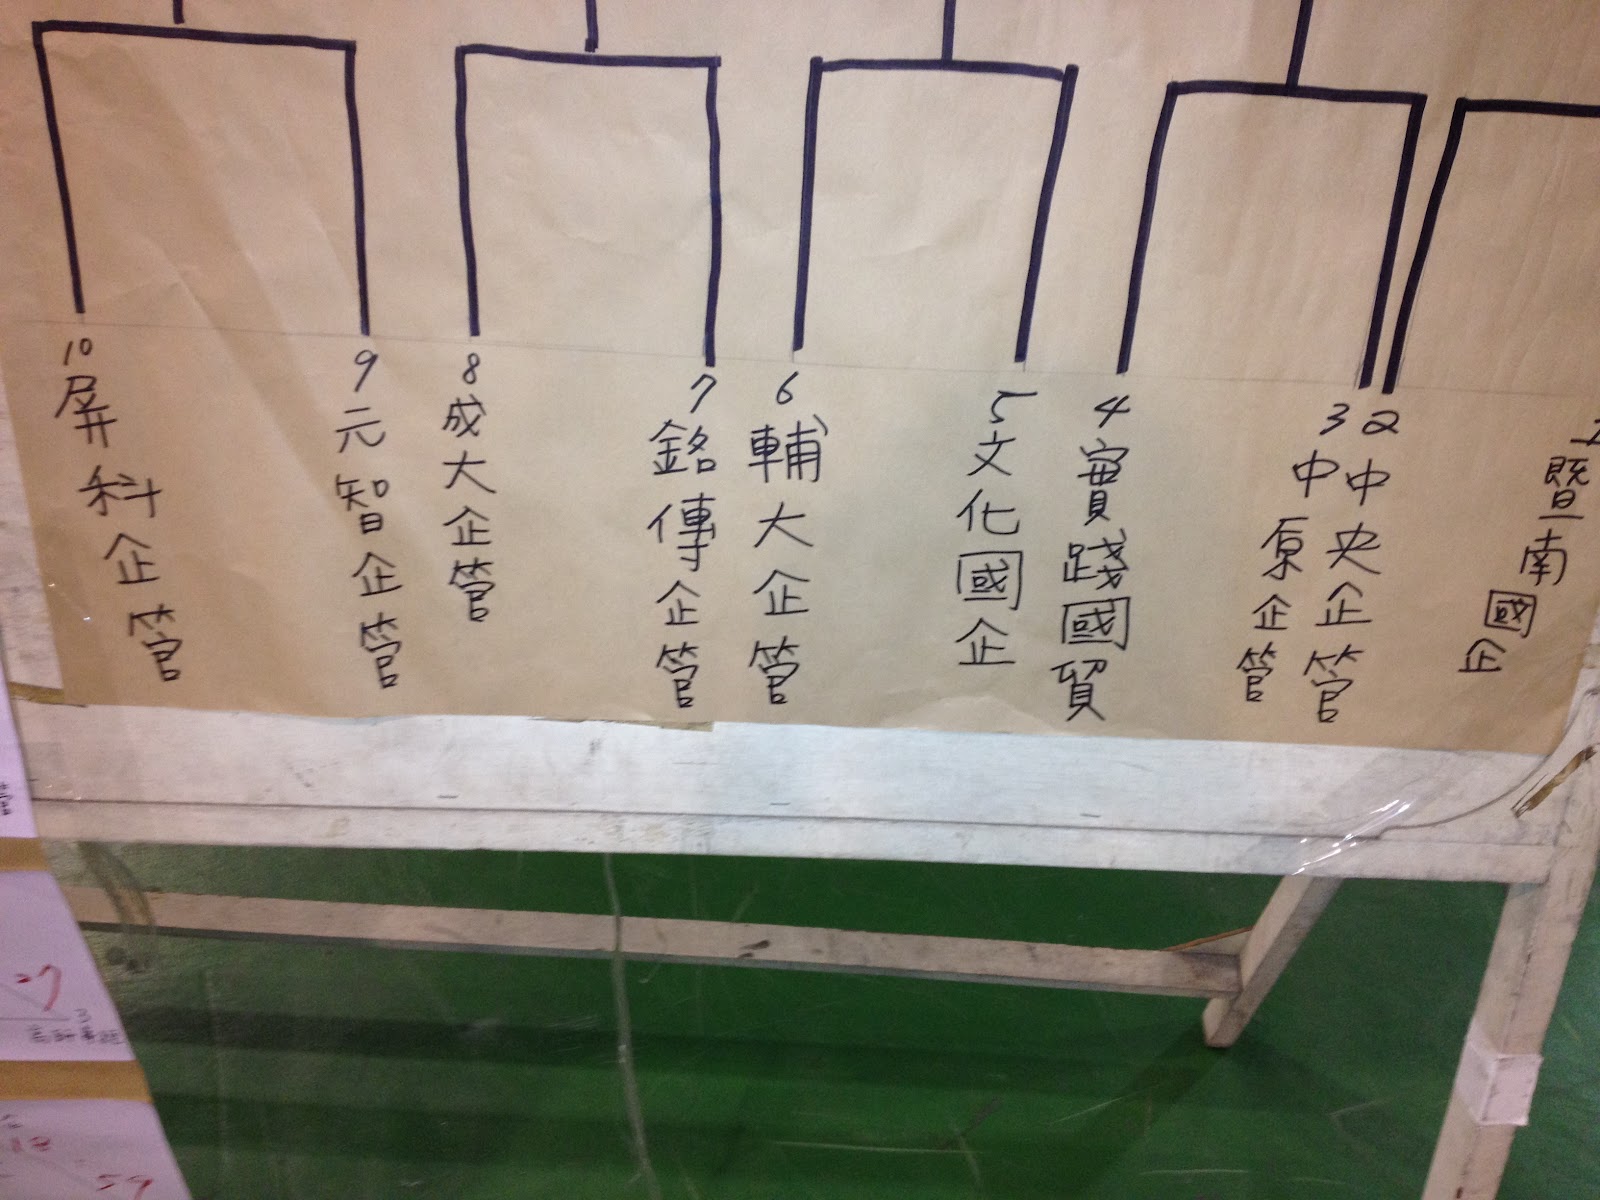 10 屏科企管
9 元智企管
8 成大企管
7 銘傳企管
6 輔大企管
5 文化國企
4 實踐國貿
3 中原企管
2 中央企管
1 暨南國企
27
18
59